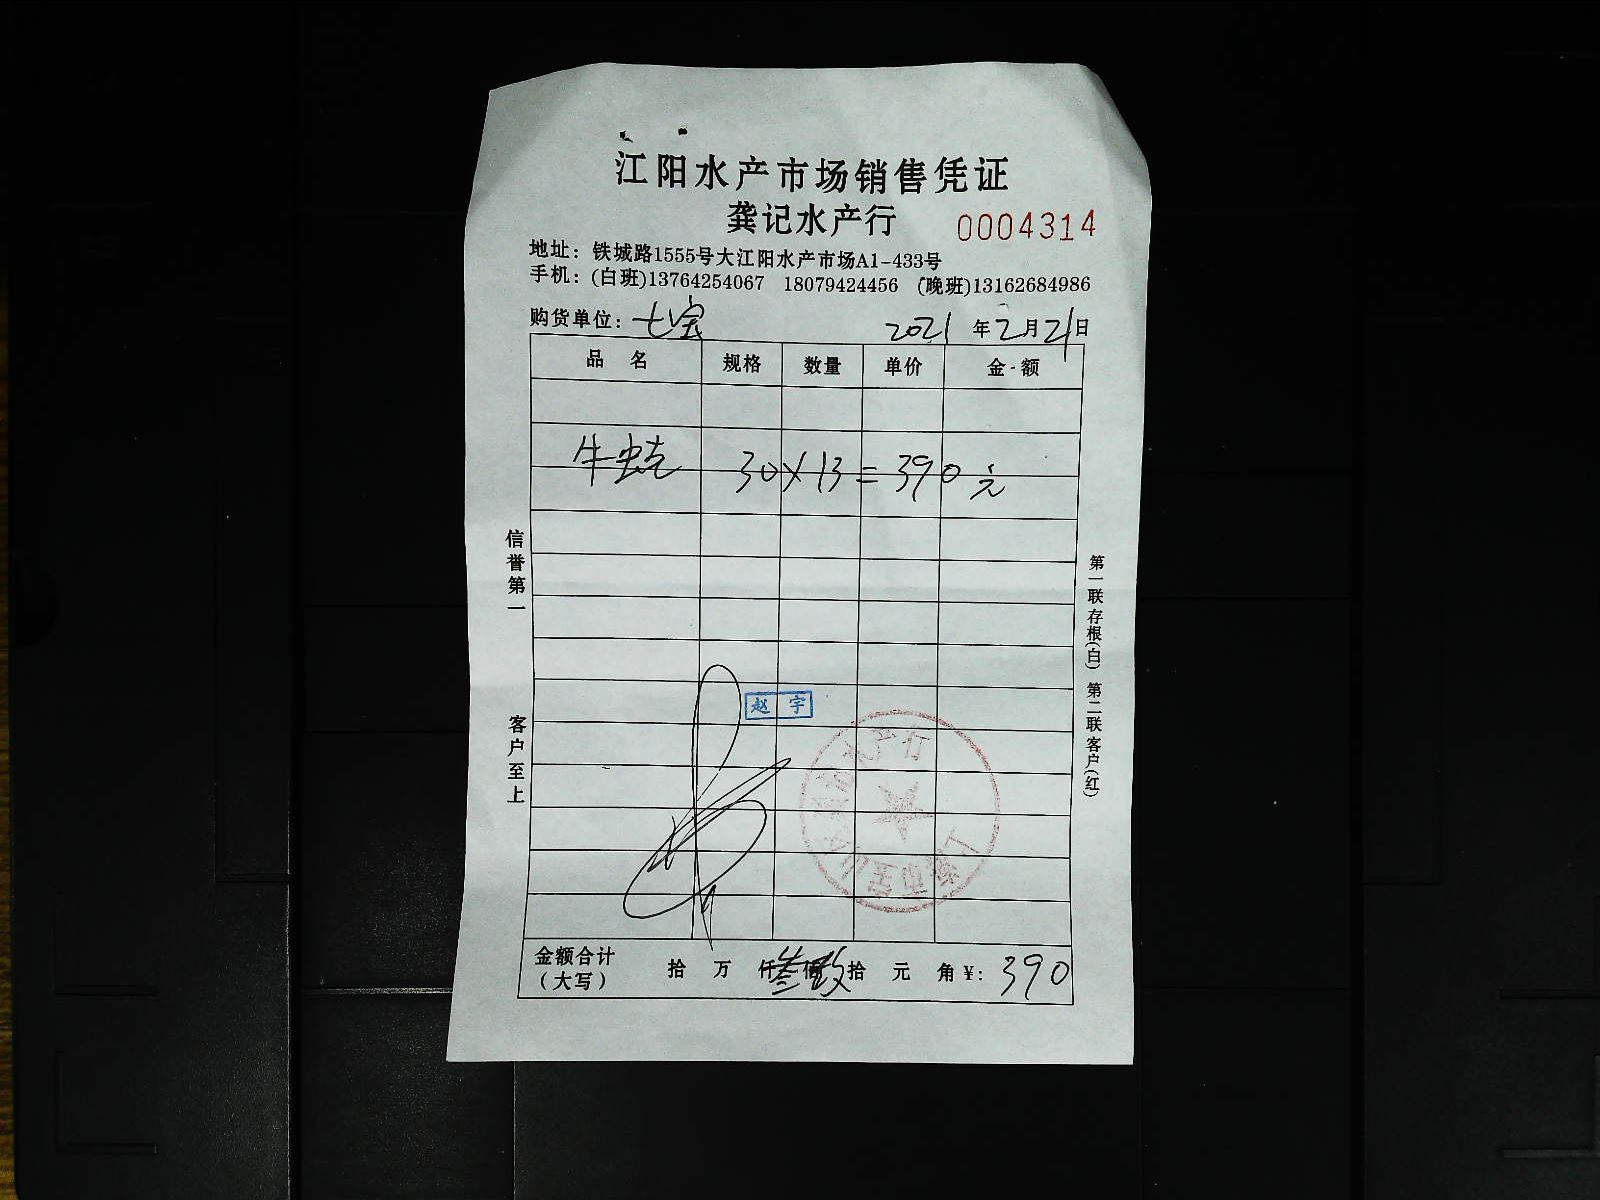 江阳水产市场销售凭证
龚记水产行 0004314
地址：铁城路1555号大江阳水产市场A1-433号
手机：(白班)13764254067 18079424456 (晚班)13162684986
购货单位：七宝 2021年2月21日
品 名 规格 数量 单价 金·额
牛虫克 30×13=390元
信誉第一
客户至上
第一联存根(白) 第二联客户(红)
赵 宇
水产行
金额合计 拾 万 仟叁佰玖拾 元 角¥：390
（大写）